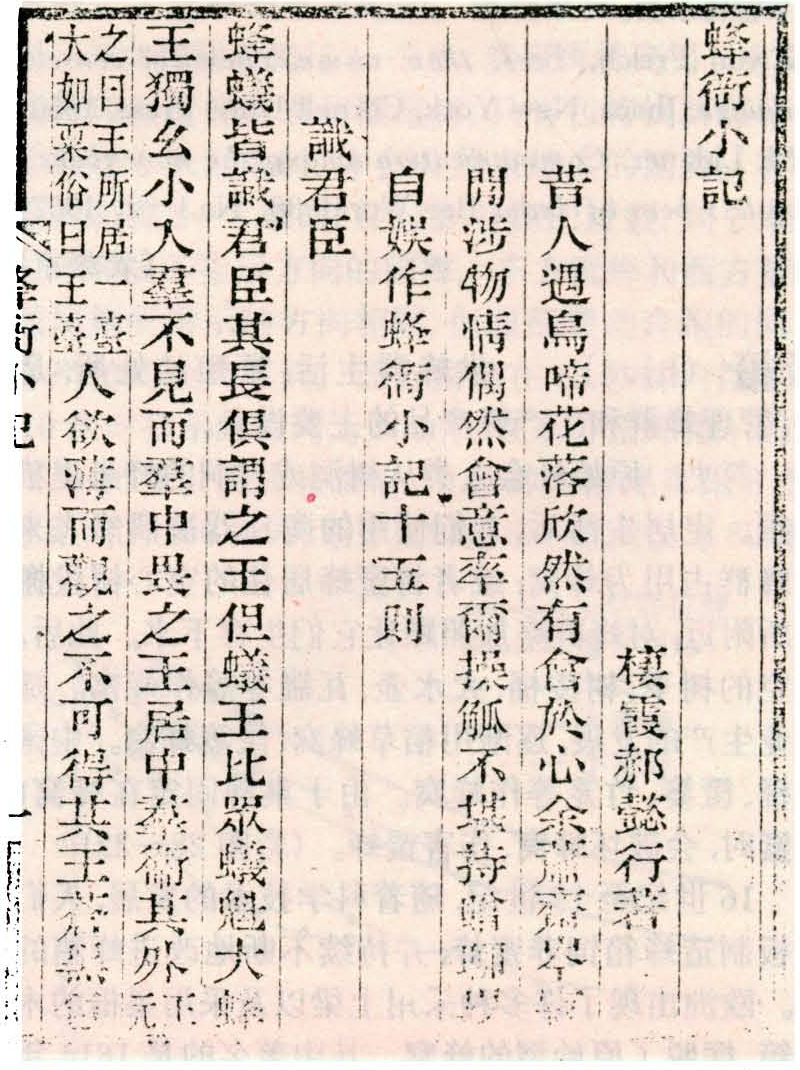 蜂衙小記
棲霞郝懿行著
昔人遇鳥啼花落欣然有會於心余
閒涉物情偶然會意率爾操觚不堪持
自娛作蜂衙小記十五則
識君臣
蜂蟻皆識君臣其長俱謂之王但蟻王比眾蟻魁大蜂
王獨幺小人羣不見而羣中畏之王居中羣衙其外
之曰王所居一臺
大如粟俗曰王臺
人欲薄而觀之不可得其王
蜂衙小記
一